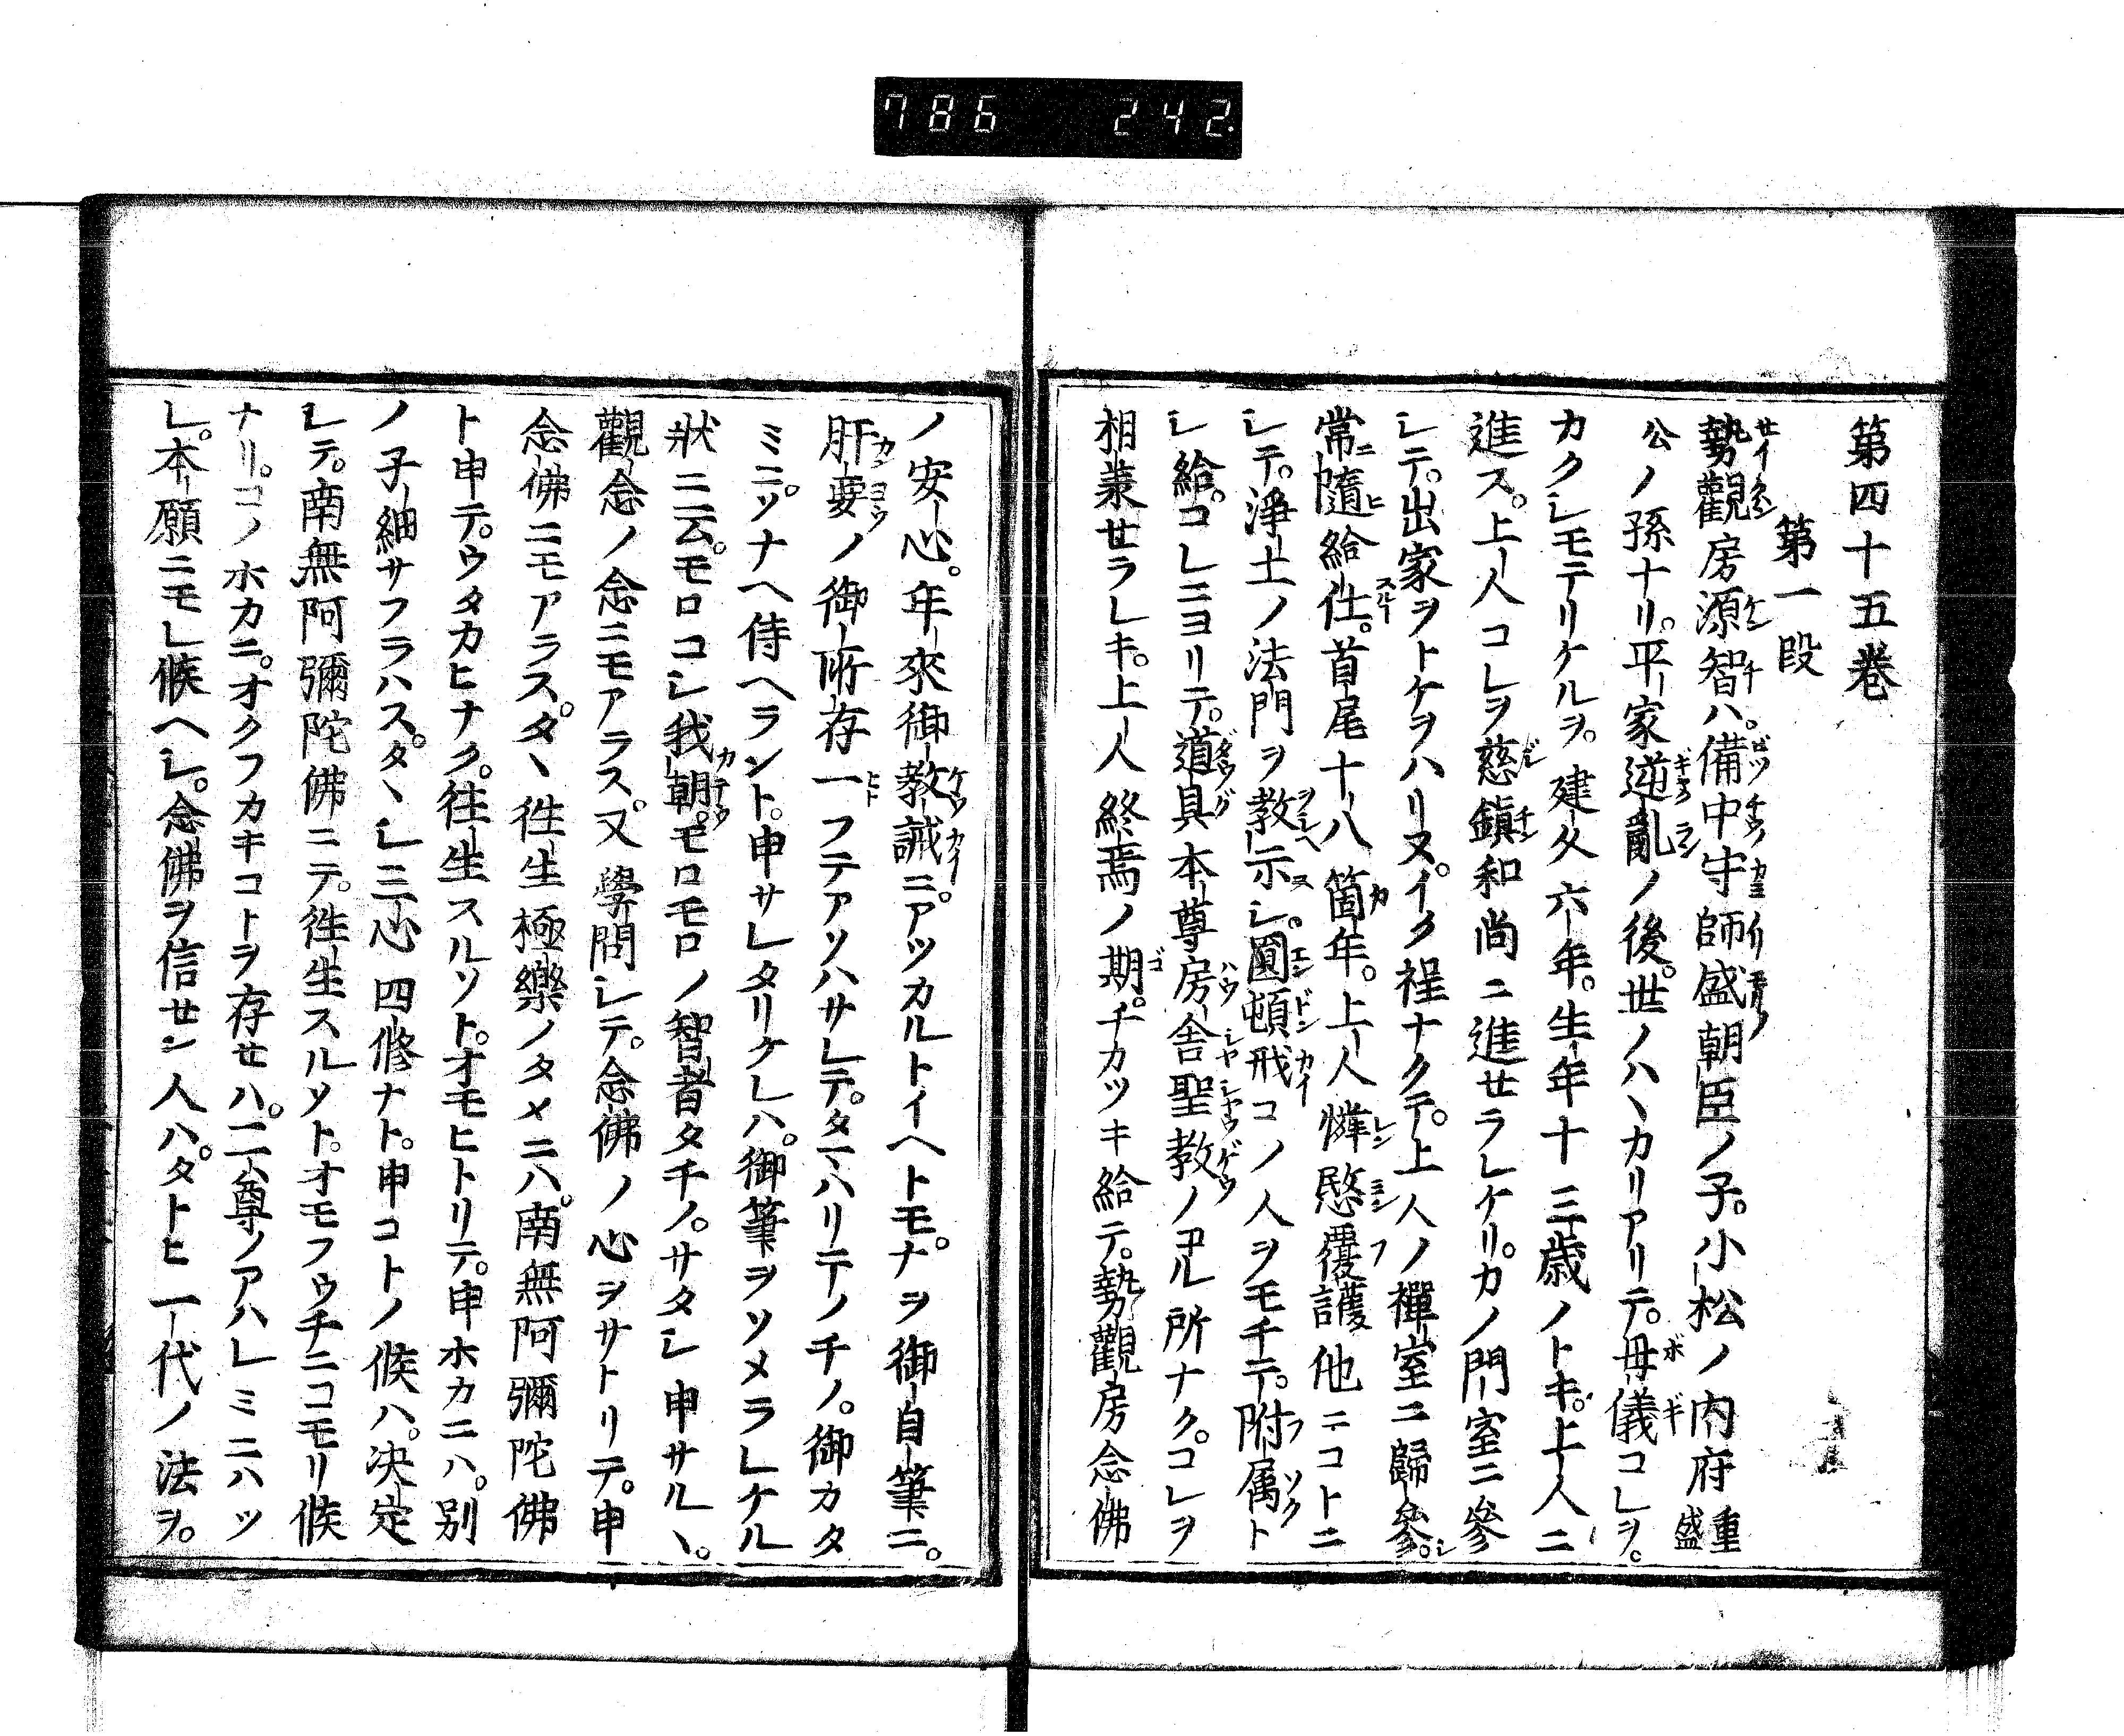 786 242.
第四十五巻
第一段
勢觀房源智ハ。備中守師盛朝臣ノ子。小松ノ内府重盛
公ノ孫ナリ。平家逆亂ノ後。世ノハヽカリアリテ。母儀コレヲ。
カクシモテリケルヲ。建久六年。生年十三歳ノトキ。上人ニ
進ス。上人コレヲ慈鎭和尚ニ進セラレケリ。カノ門室ニ參
シテ。出家ヲトケヲハリヌ。イク程ナクテ。上人ノ禪室ニ歸參。シ
常隨給仕。首尾十八箇年。上人憐愍覆護他ニコトニ
シテ。淨土ノ法門ヲ教示シ。圓頓戒コノ人ヲモチテ。附属ト
シ給。コレニヨリテ。道具本尊房舎聖教ノコル所ナク。コレヲ
相兼セラレキ。上人終焉ノ期。チカツキ給テ。勢觀房念佛
ノ安心。年來御教誡ニ。アツカルトイヘトモ。ナヲ御自筆ニ。
肝要ノ御所存一フテアソハサレテ。タマハリテノチノ。御カタ
ミニ。ソナヘ侍ヘラント。申サレタリケレハ。御筆ヲソメラレケル
狀ニ云。モロコシ我朝。モロモロノ智者タチノ。サタシ申サルヽ。
觀念ノ念ニモアラス。又學問シテ。念佛ノ心ヲサトリテ。申
念佛ニモアラス。タヽ往生極樂ノタメニハ。南無阿彌陀佛
ト申テ。ウタカヒナク。往生スルソト。オモヒトリテ。申ホカニハ。別
ノ子細サフラハス。タヽシ三心四修ナト。申コトノ候ハ。决定
シテ。南無阿彌陀佛ニテ。往生スルソト。オモフウチニコモリ候
ナリ。コノホカニ。オクフカキコトヲ存セハ。二尊ノアハレミニハツ
レ。本願ニモレ候ヘシ。念佛ヲ信セン人ハ。タトヒ一代ノ法ヲ。